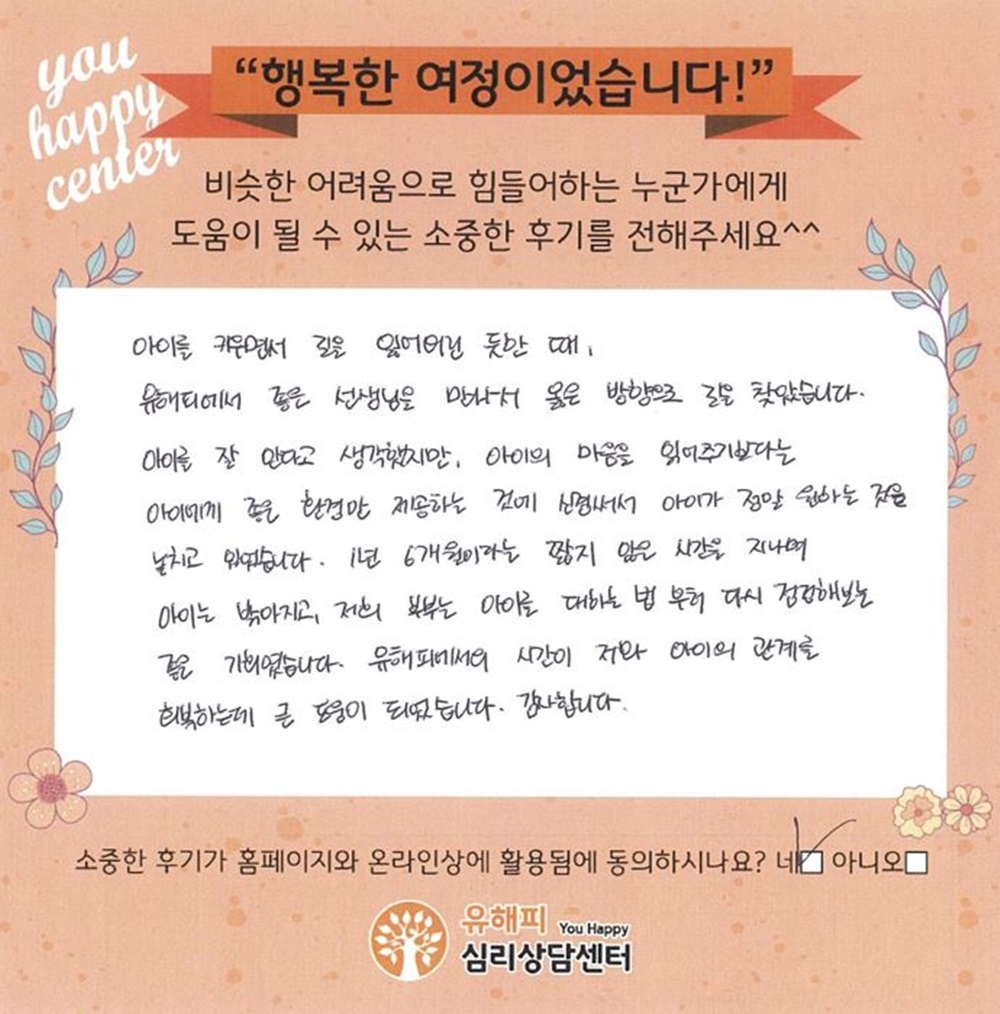 you
happy
center
“행복한 여정이었습니다!”
비슷한 어려움으로 힘들어하는 누군가에게
도움이 될 수 있는 소중한 후기를 전해주세요^^
아이를 키우면서 길을 잃어버린 듯한 때,
유해피에서 좋은 선생님을 만나서 옳은 방향으로 길을 찾았습니다.
아이를 잘 안다고 생각했지만, 아이의 마음을 읽어주기보다는
아이에게 좋은 환경만 제공하는 것에 신경써서 아이가 정말 원하는 것을
놓치고 있었습니다. 1년 6개월이라는 짧지 않은 시간을 지나며
아이는 밝아지고, 저희 부부는 아이를 대하는 법 부터 다시 점검해보는
좋은 기회였습니다. 유해피에서의 시간이 저와 아이의 관계를
회복하는데 큰 도움이 되었습니다. 감사합니다.
소중한 후기가 홈페이지와 온라인상에 활용됨에 동의하시나요? 네 아니오
유해피 You Happy
심리상담센터